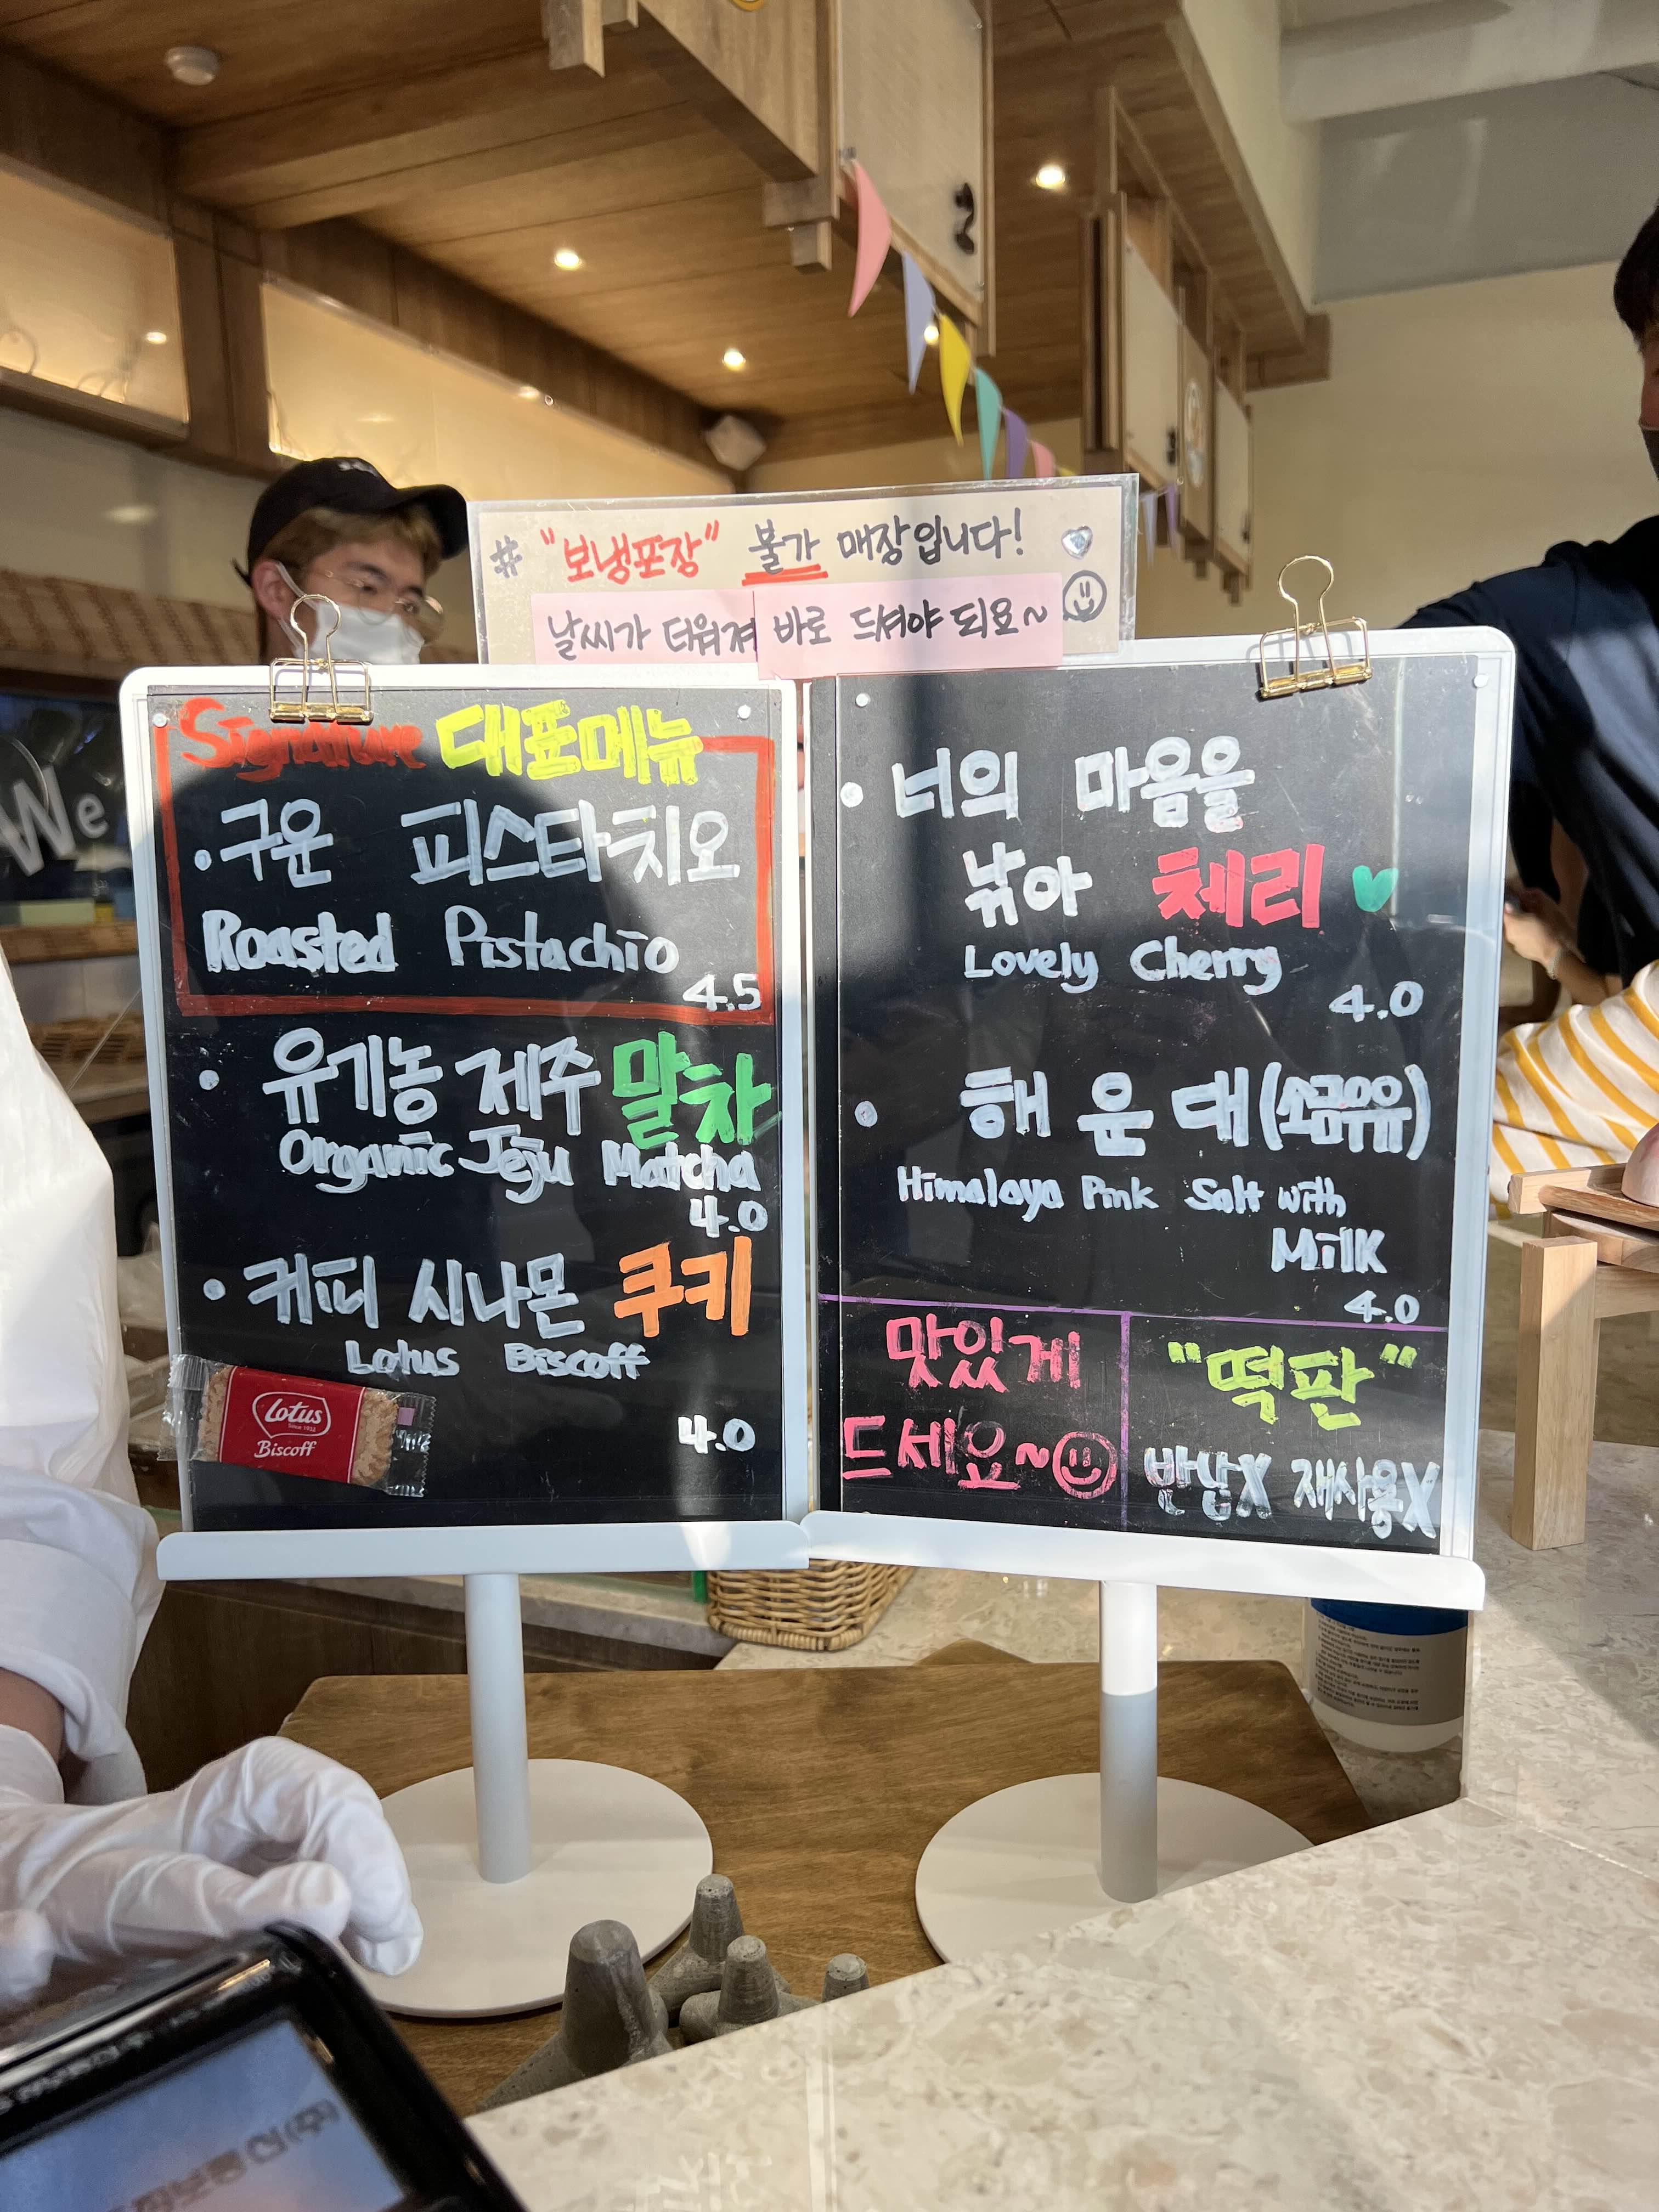 # "보냉포장" 불가 매장입니다!
날씨가 더워져 바로 드셔야 되요~
Signature 대표메뉴
· 구운 피스타치오
Roasted Pistachio
4.5
· 유기농 제주 말차
Organic Jeju Matcha
4.0
· 커피 시나몬 쿠키
Lotus Biscoff
Lotus
Since 1932
Biscoff
4.0
· 너의 마음을
낚아 체리
Lovely Cherry
4.0
· 해운대(소금우유)
Himalaya Pink Salt with
Milk
4.0
맛있게
드세요~
"떡판"
반납X 재사용X
We